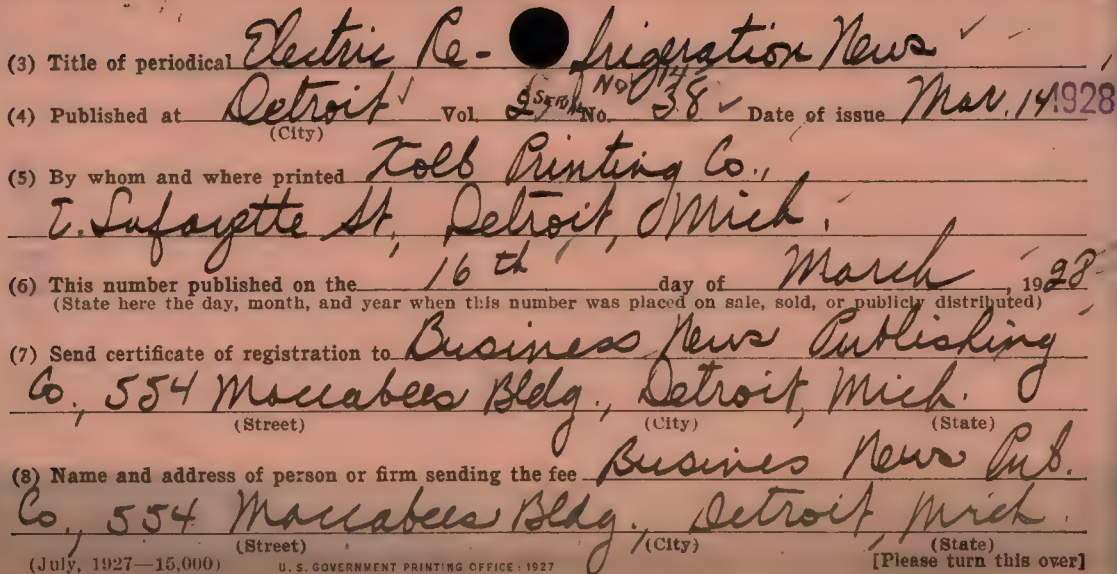 (3) Title of periodical Electric Re- frigeration News
No 14
(4) Published at Detroit Vol. 2 Serial No. 38 Date of issue Mar. 14 1928
(City)
(5) By whom and where printed Kolb Printing Co.,
E. Lafayette St, Detroit, Mich.
(6) This number published on the 16th day of March, 1928
(State here the day, month, and year when this number was placed on sale, sold, or publicly distributed)
(7) Send certificate of registration to Business News Publishing
Co., 554 Maccabees Bldg., Detroit, Mich.
(Street) (City) (State)
(8) Name and address of person or firm sending the fee Busines News Pub.
Co., 554 Maccabees Bldg., Detroit, Mich.
(Street) (City) (State)
(July, 1927—15,000) U. S. GOVERNMENT PRINTING OFFICE: 1927 [Please turn this over]